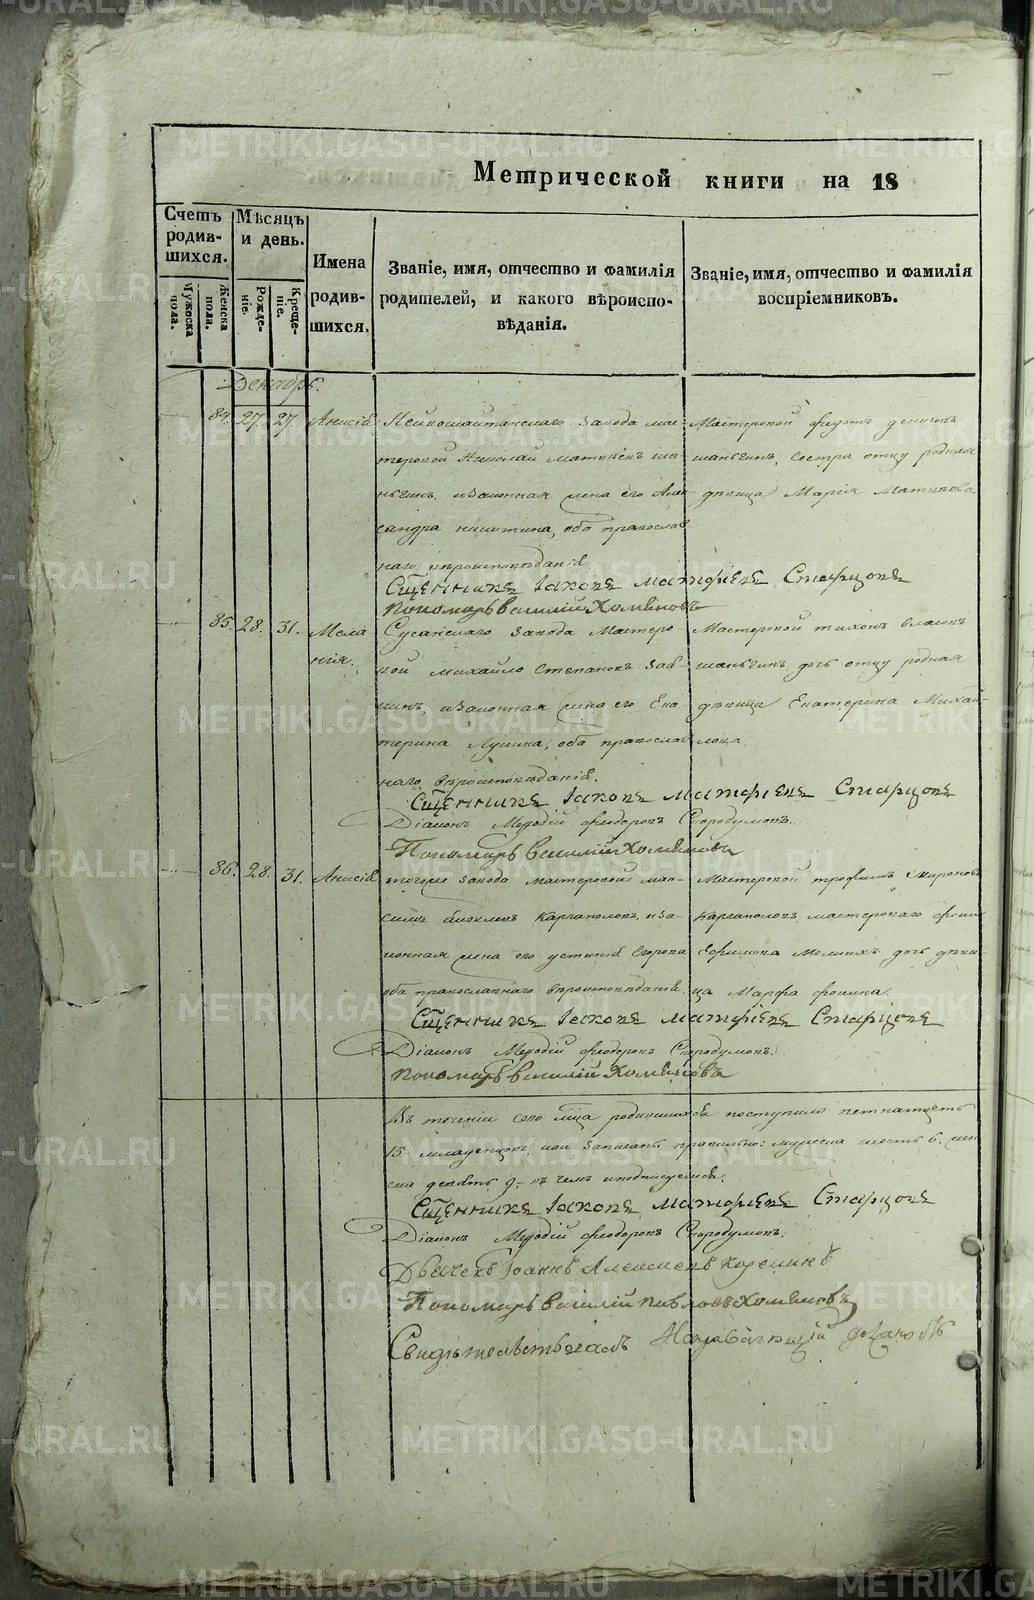 Метрической книги на 18
Счетъ родив-шихся.
Мѣсяцъ и день.
Имена родив-шихся.
Званіе, имя, отчество и фамилія родителей, и какого вѣроиспо-вѣданія.
Званіе, имя, отчество и фамилія воспріемниковъ.
Мужеска пола.
Женска пола.
Рожде-ніе.
Креще-ніе.
Декабрь.
84. 27. 27. Анисія
Нейвошайтанскаго завода ма-
стеровой Николай Матвѣевъ ша-
ньгинъ, изаконная жена его Алек
сандра никитина, оба православ
наго вѣроисповѣданія.
Мастеровой федотъ
шаньгинъ, сестра отцу родная
дѣвица Марія Матвѣева
Сщенникъ Іаковъ Матфіевъ Старцовъ
Пономарь Василій Хомяковъ
85. 28. 31. Мела
нія.
Сусанскаго завода Мастеро-
вой михайло степановъ
изаконная жена его Ека
терина Лукина, оба православ
наго вѣроисповѣданія.
Мастеровой тихонъ власовъ
шаньгинъ, дочь отцу родная
дѣвица Екатерина Михай-
лова.
Сщенникъ Іаковъ Матфіевъ Старцовъ
Діаконъ Меѳодій феодоровъ Скородумовъ.
Пономарь Василій Хомяковъ
86. 28. 31. Анисія
тогоже завода мастеровой мак-
симъ Каргаполовъ, иза-
конная жена его устинія Егорова
оба православнаго вѣроисповѣданія.
Мастеровой трофимъ мироновъ
Каргаполовъ мастероваго фоки
Ефимова дочь дѣви-
ца Марфа фокина.
Сщенникъ Іаковъ Матфіевъ Старцовъ
Діаконъ Меѳодій феодоровъ Скородумовъ.
Пономарь Василій Хомяковъ
Въ теченіи сего мца родившихся поступило петнатцеть
15 младенцовъ, кои записаны правильно: мужеска шесть 6, жен
ска деветь 9. въ чемъ иподписуемся.
Сщенникъ Іаковъ Матфіевъ Старцовъ
Діаконъ Меѳодій феодоровъ Скородумовъ.
Дьячекъ Іоаннъ Алексіевъ
Пономарь Василій павловъ Хомяковъ
Свидѣтельствовалъ
METRIKI.GASO-URAL.RU